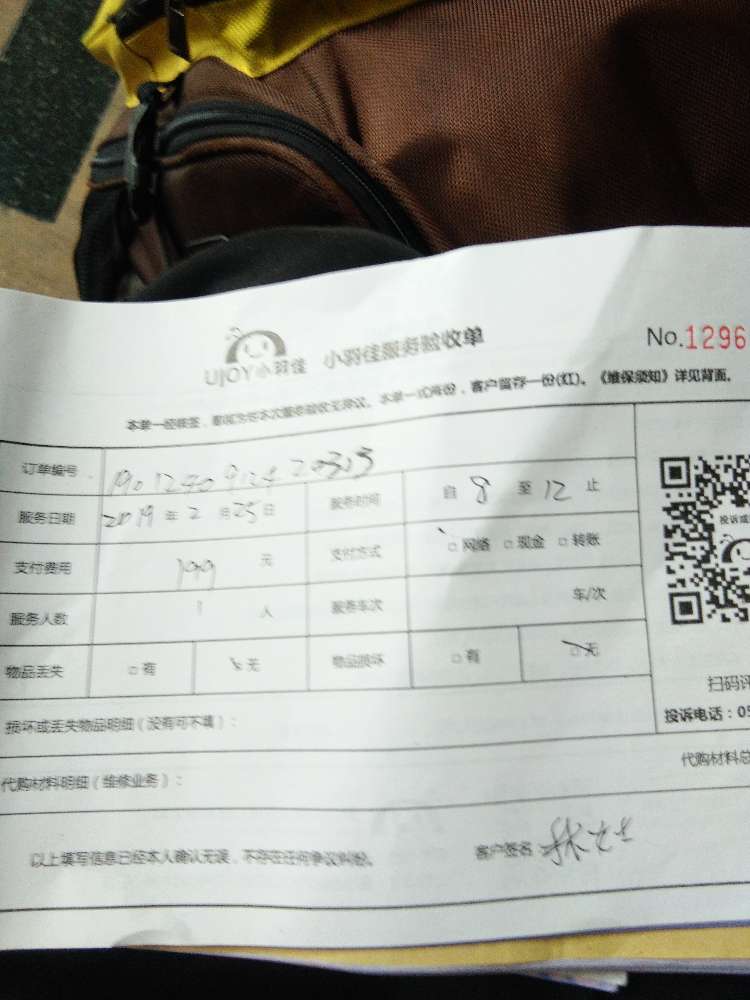 UJOY小羽佳 小羽佳服务验收单 No.1296
本单一经核签，即视为在本次服务验收无异议。本单一式两份，客户留存一份(红)。《维保须知》详见背面。
订单编号
服务日期 2019年2月25日 服务时间 自 8 至 12 止
支付费用 199 元 支付方式 □网络 □现金 □转账
服务人数 1 人 服务车次 车/次
物品丢失 □有 □无 物品损坏 □有 □无
扫码评
损坏或丢失物品明细（没有可不填）： 投诉电话：05
代购材料明细（维修业务）： 代购材料总
以上填写信息已经本人确认无误，不存在任何争议纠纷。 客户签名 林女士